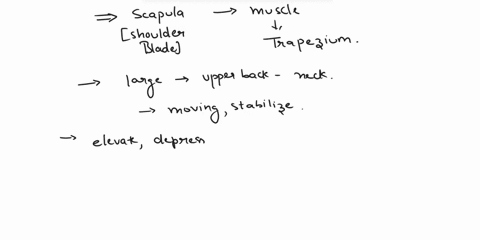 ⇒ Scapula → muscle
[shoulder ↓
Blade] Trapezium.
→ large → upper back - neck.
→ moving, stabilize.
→ elevat, depres